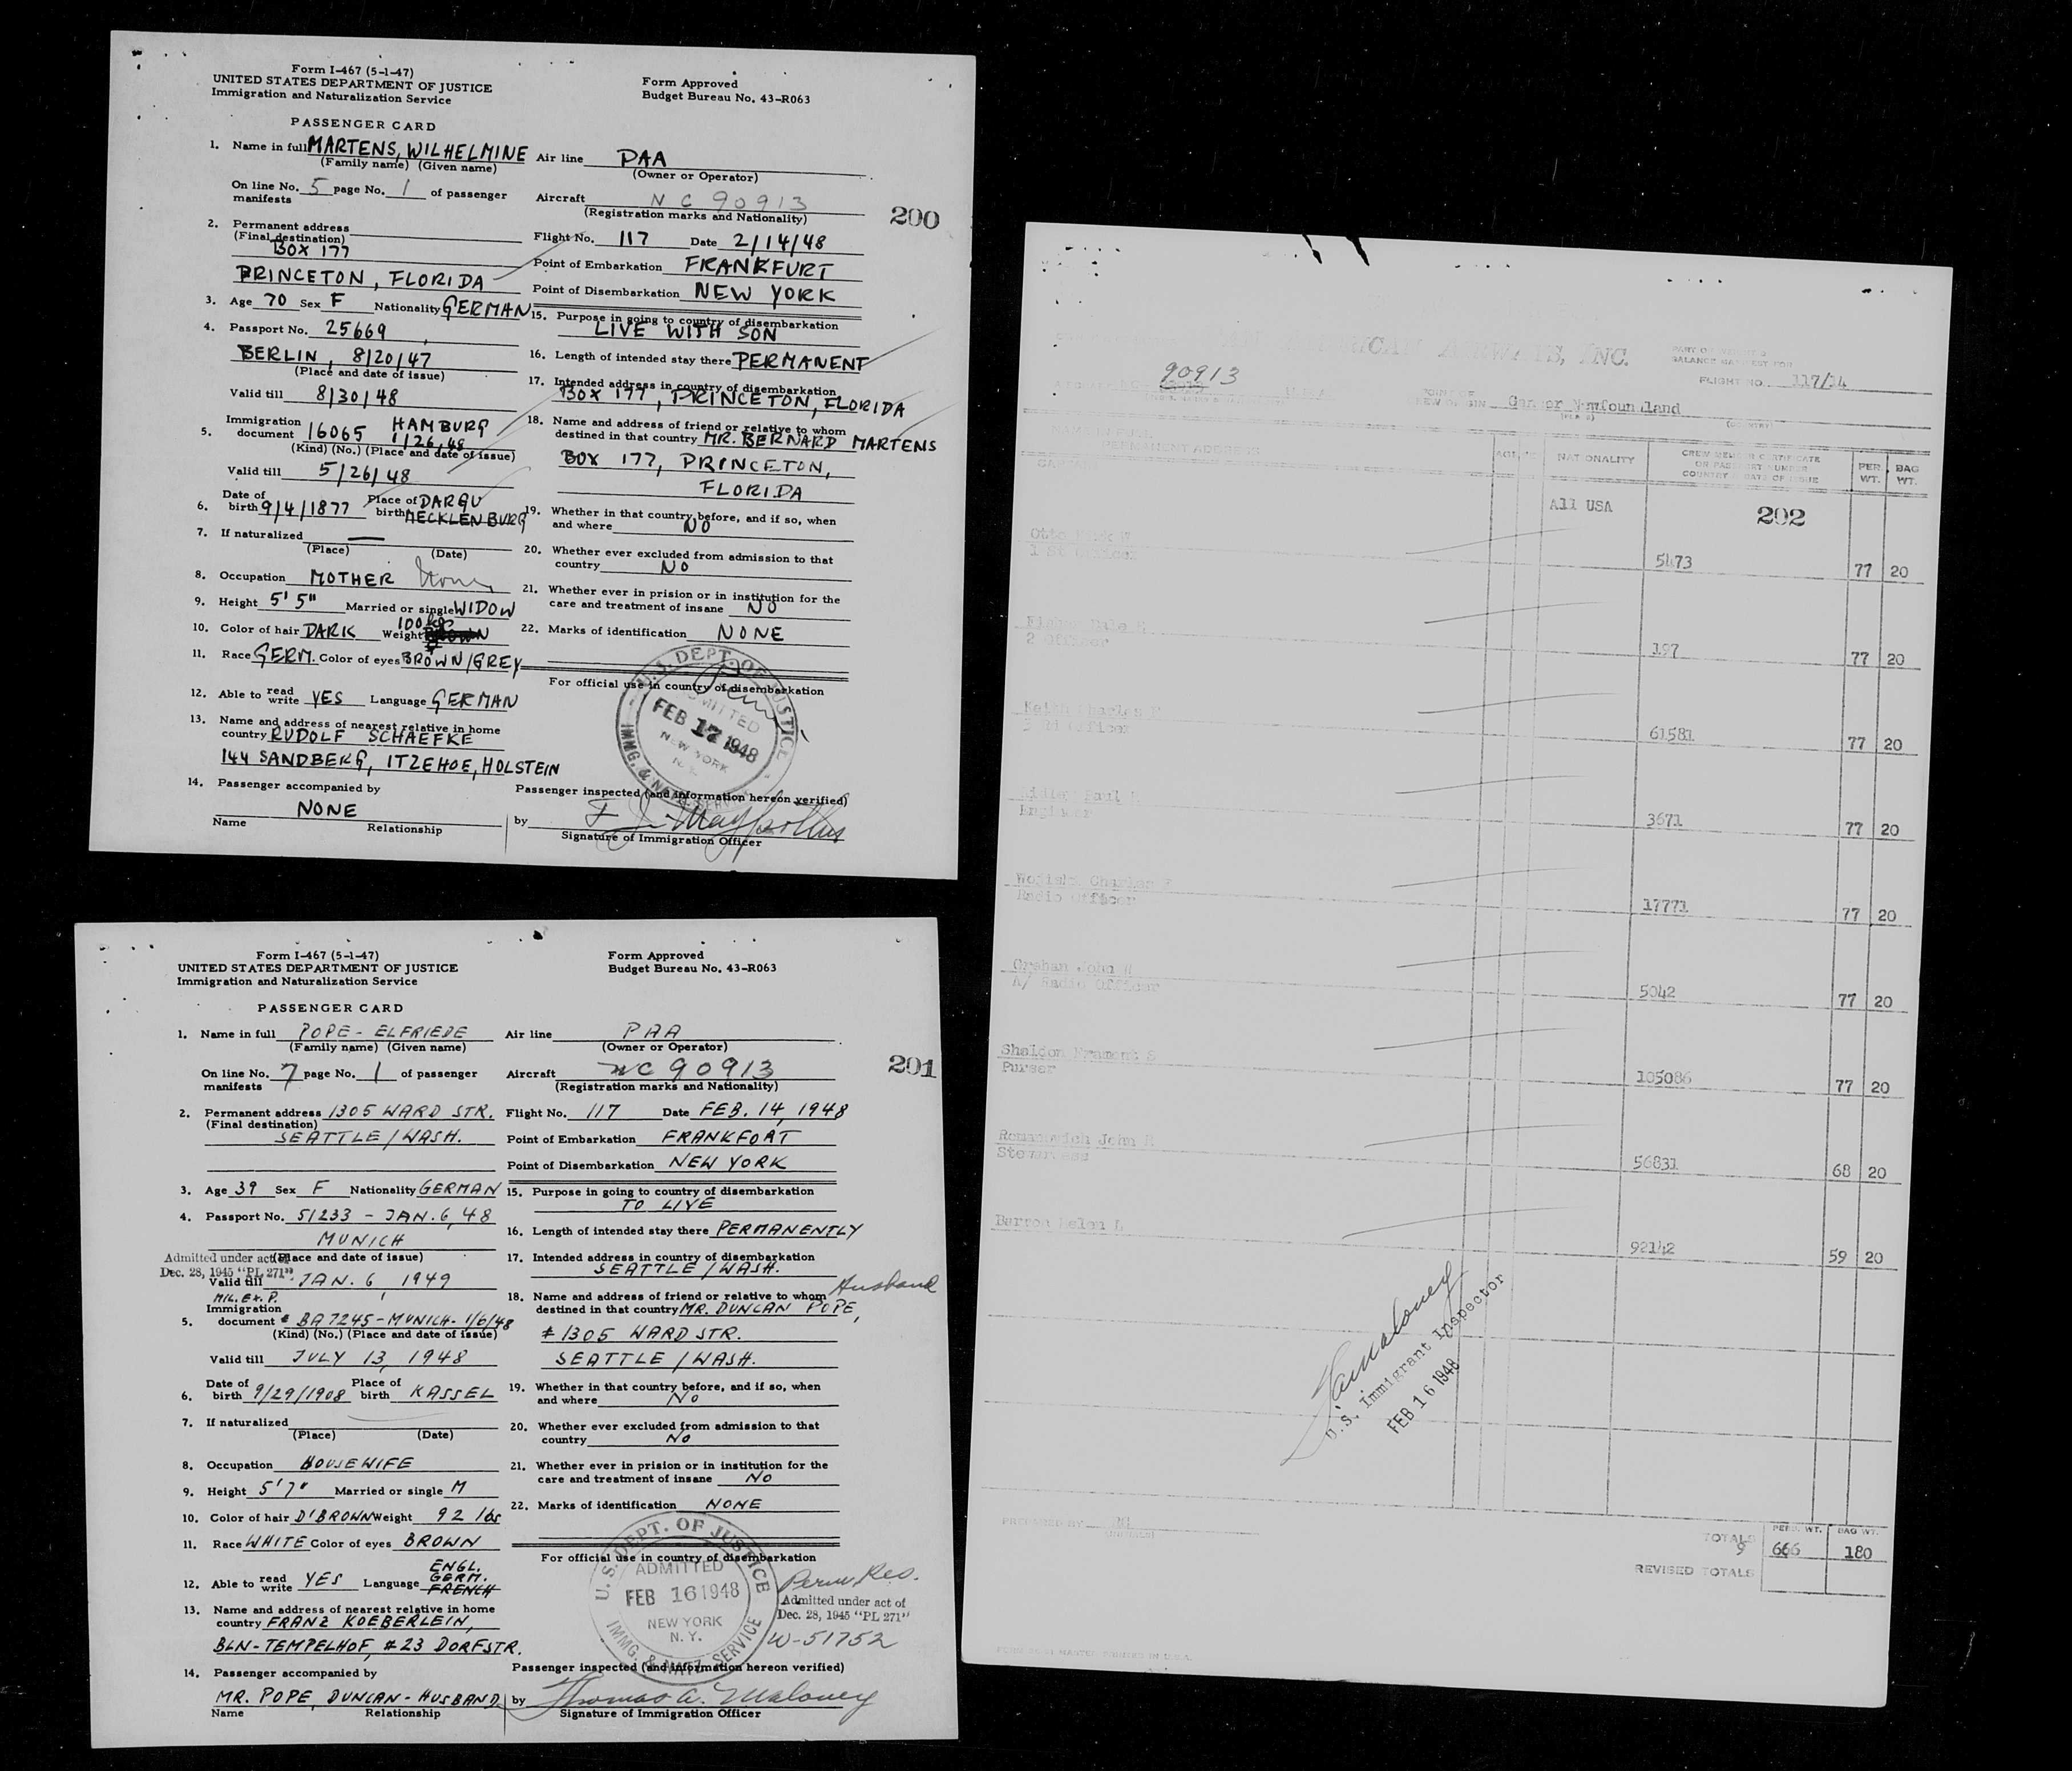 Form I-467 (5-1-47)
UNITED STATES DEPARTMENT OF JUSTICE
Immigration and Naturalization Service
Form Approved
Budget Bureau No. 43-R063
PASSENGER CARD
1. Name in full MARTENS, WILHELMINE
(Family name) (Given name)
On line No. 5 page No. 1 of passenger
manifests
2. Permanent address
(Final destination)
BOX 177
PRINCETON, FLORIDA
3. Age 70 Sex F Nationality GERMAN
4. Passport No. 25669
BERLIN, 8/20/47
(Place and date of issue)
Valid till 8/30/48
5. Immigration document 16065 HAMBURG 1/26.48
(Kind) (No.) (Place and date of issue)
Valid till 5/26/48
6. Date of birth 9/4/1877 Place of birth DARGU MECKLENBURG
7. If naturalized —
(Place) (Date)
8. Occupation MOTHER
9. Height 5' 5" Married or single WIDOW
10. Color of hair DARK Weight 100
11. Race GERM. Color of eyes BROWN/GREY
12. Able to read write YES Language GERMAN
13. Name and address of nearest relative in home
country RUDOLF SCHAEFKE
144 SANDBERG, ITZEHOE, HOLSTEIN
14. Passenger accompanied by
NONE
Name Relationship
Air line PAA
(Owner or Operator)
Aircraft NC 90913
(Registration marks and Nationality)
200
Flight No. 117 Date 2/14/48
Point of Embarkation FRANKFURT
Point of Disembarkation NEW YORK
15. Purpose in going to country of disembarkation
LIVE WITH SON
16. Length of intended stay there PERMANENT
17. Intended address in country of disembarkation
BOX 177, PRINCETON, FLORIDA
18. Name and address of friend or relative to whom
destined in that country MR. BERNARD MARTENS
BOX 177, PRINCETON,
FLORIDA
19. Whether in that country before, and if so, when
and where NO
20. Whether ever excluded from admission to that
country NO
21. Whether ever in prision or in institution for the
care and treatment of insane NO
22. Marks of identification NONE
For official use in country of disembarkation
U.S. DEPT. OF JUSTICE
ADMITTED
FEB 17 1948
NEW YORK
N.Y.
IMMG. & NATZ. SERVICE
Passenger inspected (and information hereon verified)
by
Signature of Immigration Officer
Form I-467 (5-1-47)
UNITED STATES DEPARTMENT OF JUSTICE
Immigration and Naturalization Service
Form Approved
Budget Bureau No. 43-R063
PASSENGER CARD
1. Name in full POPE - ELFRIEDE
(Family name) (Given name)
On line No. 7 page No. 1 of passenger
manifests
2. Permanent address 1305 WARD STR.
(Final destination)
SEATTLE / WASH.
3. Age 39 Sex F Nationality GERMAN
4. Passport No. 51233 - JAN. 6, 48
MUNICH
(Place and date of issue)
Admitted under act of
Dec. 28, 1945 "PL 271"
Valid till JAN. 6, 1949
MIL. EX. P.
5. Immigration document # BA7245 - MUNICH - 1/6/48
(Kind) (No.) (Place and date of issue)
Valid till JULY 13, 1948
6. Date of birth 9/29/1908 Place of birth KASSEL
7. If naturalized
(Place) (Date)
8. Occupation HOUSEWIFE
9. Height 5'7" Married or single M
10. Color of hair D'BROWN Weight 92 lbs
11. Race WHITE Color of eyes BROWN
12. Able to read write YES Language ENGL. GERM. FRENCH
13. Name and address of nearest relative in home
country FRANZ KOEBERLEIN,
BLN-TEMPELHOF, #23 DORFSTR.
14. Passenger accompanied by
MR. POPE, DUNCAN - HUSBAND
Name Relationship
Air line PAA
(Owner or Operator)
Aircraft NC 90913
(Registration marks and Nationality)
201
Flight No. 117 Date FEB. 14, 1948
Point of Embarkation FRANKFORT
Point of Disembarkation NEW YORK
15. Purpose in going to country of disembarkation
TO LIVE
16. Length of intended stay there PERMANENTLY
17. Intended address in country of disembarkation
SEATTLE / WASH.
18. Name and address of friend or relative to whom Husband
destined in that country MR. DUNCAN POPE,
# 1305 WARD STR.
SEATTLE / WASH.
19. Whether in that country before, and if so, when
and where No
20. Whether ever excluded from admission to that
country No
21. Whether ever in prision or in institution for the
care and treatment of insane NO
22. Marks of identification NONE
For official use in country of disembarkation
U.S. DEPT. OF JUSTICE
ADMITTED
FEB 16 1948
NEW YORK
N.Y.
IMMG. & NATZ. SERVICE
Perm. Res.
Admitted under act of
Dec. 28, 1945 "PL 271"
W-51752
Passenger inspected (and information hereon verified)
by Thomas A. Maloney
Signature of Immigration Officer
PAN AMERICAN AIRWAYS, INC.
90913
FLIGHT NO. 117/14
Gander Newfoundland
NAME IN FULL
PERMANENT ADDRESS
AGE
NATIONALITY
CREW MEMBER CERTIFICATE
OR PASSPORT NUMBER
COUNTRY & DATE OF ISSUE
PER. WT.
BAG WT.
All USA
202
Otto
5473 77 20
2 Officer
197 77 20
Keith Charles
61581 77 20
Paul
Engineer
3671 77 20
Charles
Radio Officer
17771 77 20
John
A/ Radio Officer
5042 77 20
Sheldon
Purser
105086 77 20
Romanovich John
56831 68 20
Barron Helen L
92142 59 20
U.S. Immigrant Inspector
FEB 16 1948
PREPARED BY
TOTALS 9
PERS. WT. 666
BAG WT. 180
REVISED TOTALS